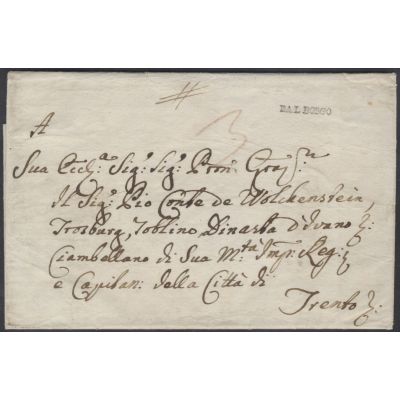 DAL BORGO
3
A
Sua Ecc:ª Sig:r Sig:r Pron: Graz:mo
Il Sig:r Pio Conte de Wolckenstein,
Trosburg, Toblino, Dinasta d'Ivano
Ciambellano di Sua M:tà Imp: Reg:
e Capitan: della Città di
Trento